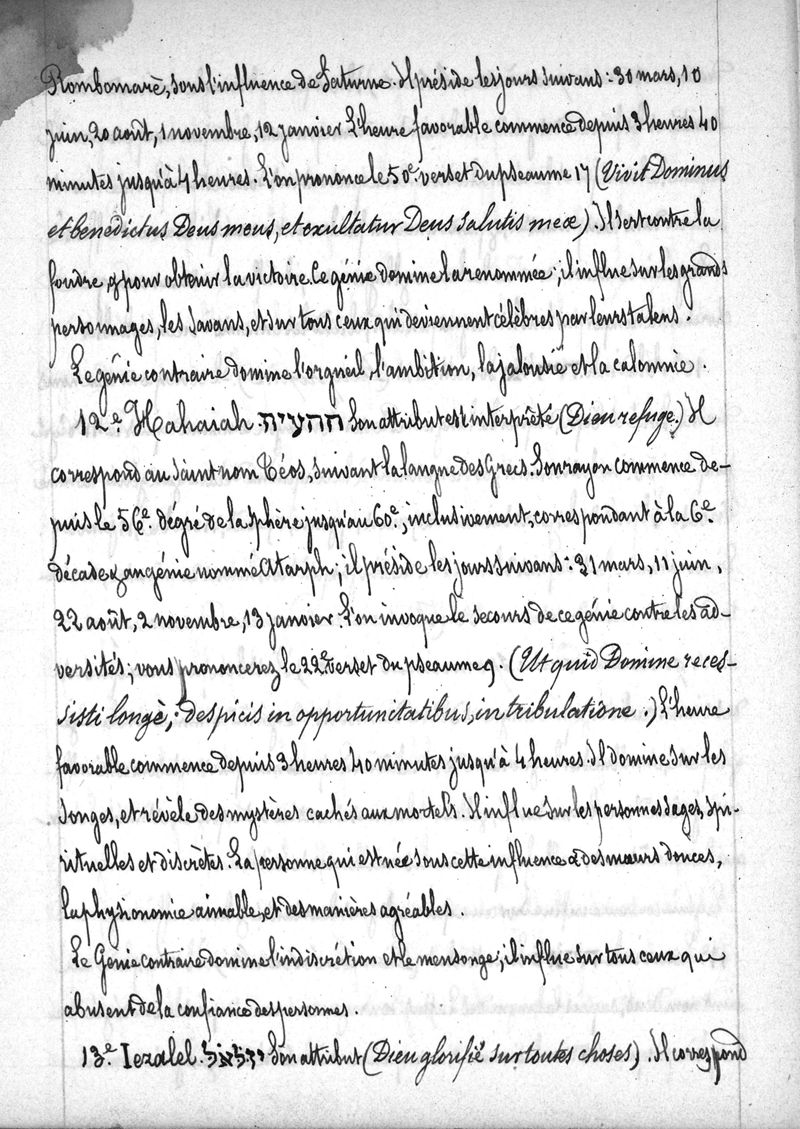 Rombomarè, sous l'influence de Saturne. Il préside les jours suivans : 30 mars, 10
juin, 20 août, 1 novembre, 12 janvier. L'heure favorable commence depuis 3 heures 40
minutes jusqu'à 4 heures. L'on prononce le 50e. verset du pseaume 17 (Vivit Dominus
et benedictus Deus meus, et exultatur Deus salutis meæ). Il sert contre la
foudre, & pour obtenir la victoire. Ce génie domine la renommée ; il influe sur les grands
personnages, les savans, et sur tous ceux qui deviennent célèbres par leurs talens.
Le génie contraire domine l'orgueil, l'ambition, la jalousie et la calomnie.
12e. Hahaiah. ההעיה Son attribut est interprêté (Dieu refuge.) Il
correspond au Saint nom Téos, suivant la langue des Grecs. Son rayon commence de-
puis le 56e. dégré de la sphère jusqu'au 60e., inclusivement, correspondant à la 6e.
décade & au génie nommé Atarph ; il préside les jours suivans : 31 mars, 11 juin,
22 août, 2 novembre, 13 janvier. L'on invoque le secours de ce génie contre les ad-
versités ; vous prononcerez le 22e. verset du pseaume 9. (Ut quid Domine reces-
sisti longè, despicis in opportunitatibus, in tribulatione.) L'heure
favorable commence depuis 3 heures 40 minutes jusqu'à 4 heures. Il domine sur les
songes, et révèle des mystères cachés aux mortels. Il influe sur les personnes sages, spi-
rituelles et discrètes. La personne qui est née sous cette influence a des mœurs douces,
la physionomie aimable, et des manières agréables.
Le Génie contraire domine l'indiscrétion et le mensonge ; il influe sur tous ceux qui
abusent de la confiance des personnes.
13e. Iezalel. יזלאל Son attribut (Dieu glorifié sur toutes choses). Il correspond